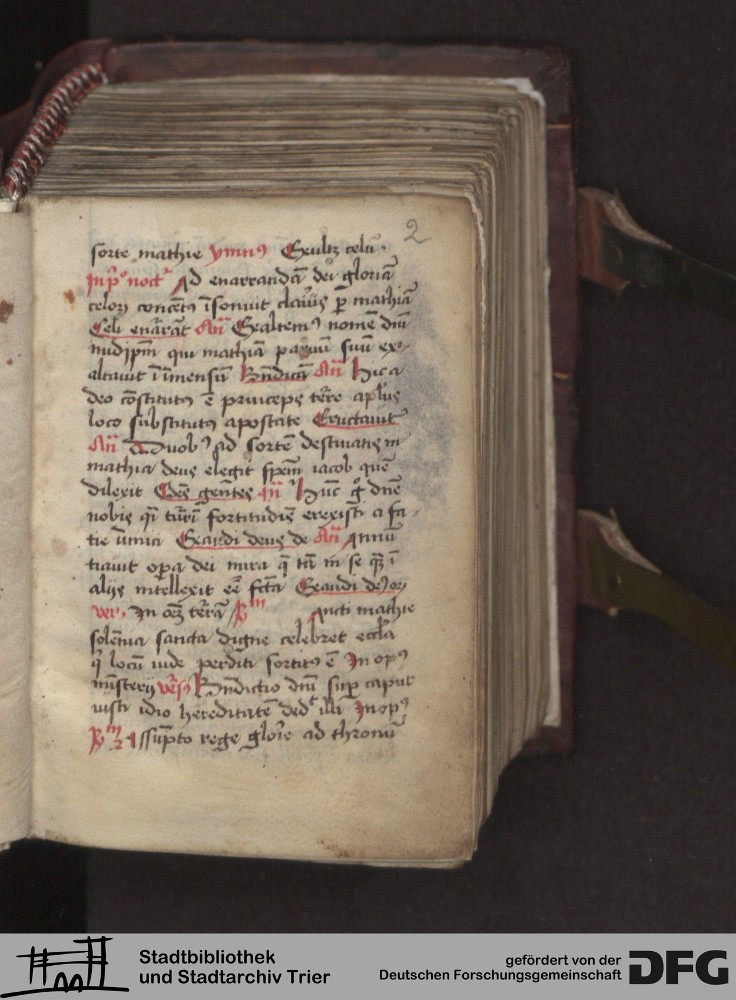 2
sorte mathie ymnꝰ Exultꝫ celū·
In pº noctᵉ Ad enarrandā dei gloriā
celoꝝ concētꝰ īsonuit clariꝰ ꝑ mathiā
Celi enarāt Añ Exaltemꝰ nomē dñi
qui mathiā suū ex-
altauit ī imensū Bn̄dicā Añ Hic a
deo cōstitutꝰ ē princeps terre apl̄us
loco substitutꝰ apostate Eructauit
Añ Duobꝰ ad sortē destinatis in
mathia deus elegit spēm iacob quē
dilexit Oēs gentes Añ Hūc gͦ dn̄e
nobis qͣi turrī fortitudīs erexisti a fa-
cie inīmici Exaudi deus de Añ Annū
tiauit opa dei mira q̄ tā in se qͣꝫ ī
alijs intellexit eē fcā Exaudi deꝰ oꝝ
verꝰ In oēꝫ terrā ℟m Ancti mathie
solēnia sancta digne celebret eccl̄a
qͥ locū iude perditi sortitꝰ ē In opꝰ
mīsterij versꝰ Bn̄dictio dn̄i suꝑ caput
iusti idio hereditatē dedᵗ illi In opꝰ
℟m 2 Assūpto rege glorie ad thronū
Stadtbibliothek
und Stadtarchiv Trier
gefördert von der
Deutschen Forschungsgemeinschaft
DFG